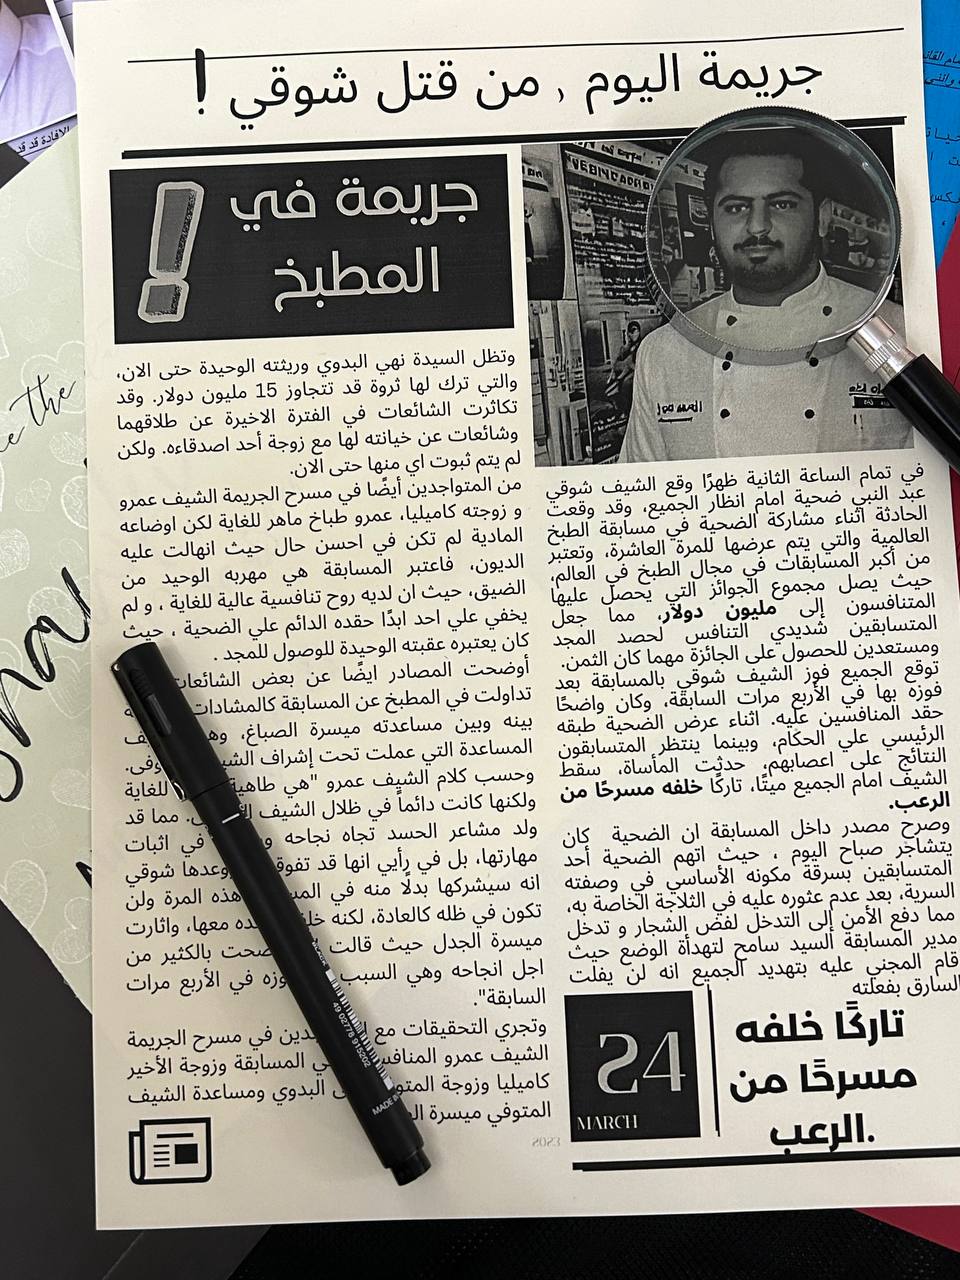 جريمة اليوم , من قتل شوقي !
جريمة في
المطبخ
!
في تمام الساعة الثانية ظهرًا وقع الشيف شوقي
عبد النبي ضحية امام انظار الجميع، وقد وقعت
الحادثة اثناء مشاركة الضحية في مسابقة الطبخ
العالمية والتي يتم عرضها للمرة العاشرة، وتعتبر
من أكبر المسابقات في مجال الطبخ في العالم،
حيث يصل مجموع الجوائز التي يحصل عليها
المتنافسون إلى مليون دولار، مما جعل
المتسابقين شديدي التنافس لحصد المجد
ومستعدين للحصول على الجائزة مهما كان الثمن.
توقع الجميع فوز الشيف شوقي بالمسابقة بعد
فوزه بها في الأربع مرات السابقة، وكان واضحًا
حقد المنافسين عليه. اثناء عرض الضحية طبقه
الرئيسي علي الحكام، وبينما ينتظر المتسابقون
النتائج على اعصابهم، حدثت المأساة، سقط
الشيف امام الجميع ميتًا، تاركًا خلفه مسرحًا من
الرعب.
وصرح مصدر داخل المسابقة ان الضحية كان
يتشاجر صباح اليوم ، حيث اتهم الضحية أحد
المتسابقين بسرقة مكونه الأساسي في وصفته
السرية، بعد عدم عثوره عليه في الثلاجة الخاصة به،
مما دفع الأمن إلى التدخل لفض الشجار و تدخل
مدير المسابقة السيد سامح لتهدأة الوضع حيث
قام المجني عليه بتهديد الجميع انه لن يفلت
السارق بفعلته
24
MARCH
تاركًا خلفه
مسرحًا من
الرعب.
وتظل السيدة نهي البدوي وريثته الوحيدة حتى الان،
والتي ترك لها ثروة قد تتجاوز 15 مليون دولار. وقد
تكاثرت الشائعات في الفترة الاخيرة عن طلاقهما
وشائعات عن خيانته لها مع زوجة أحد اصدقاءه. ولكن
لم يتم ثبوت اي منها حتى الان.
من المتواجدين أيضًا في مسرح الجريمة الشيف عمرو
و زوجته كاميليا، عمرو طباخ ماهر للغاية لكن اوضاعه
المادية لم تكن في احسن حال حيث انهالت عليه
الديون، فاعتبر المسابقة هي مهربه الوحيد من
الضيق، حيث ان لديه روح تنافسية عالية للغاية ، و لم
يخفي علي احد ابدًا حقده الدائم علي الضحية ، حيث
كان يعتبره عقبته الوحيدة للوصول للمجد .
أوضحت المصادر ايضًا عن بعض الشائعات
تداولت في المطبخ عن المسابقة كالمشادات
بينه وبين مساعدته ميسرة الصباغ،
المساعدة التي عملت تحت إشراف
وحسب كلام الشيف عمرو "هي طاهية للغاية
ولكنها كانت دائماً في ظلال الشيف مما قد
ولد مشاعر الحسد تجاه نجاحه في اثبات
مهارتها، بل في رأيي انها قد شوقي
انه سيشركها بدلًا منه في هذه المرة ولن
تكون في ظله كالعادة، لكنه معها، واثارت
ميسرة الجدل حيث قالت بالكثير من
اجل انجاحه وهي السبب في الأربع مرات
السابقة".
وتجري التحقيقات مع في مسرح الجريمة
الشيف عمرو المسابقة وزوجة الأخير
كاميليا وزوجة البدوي ومساعدة الشيف
المتوفي ميسرة
49 02778 915202
MADE